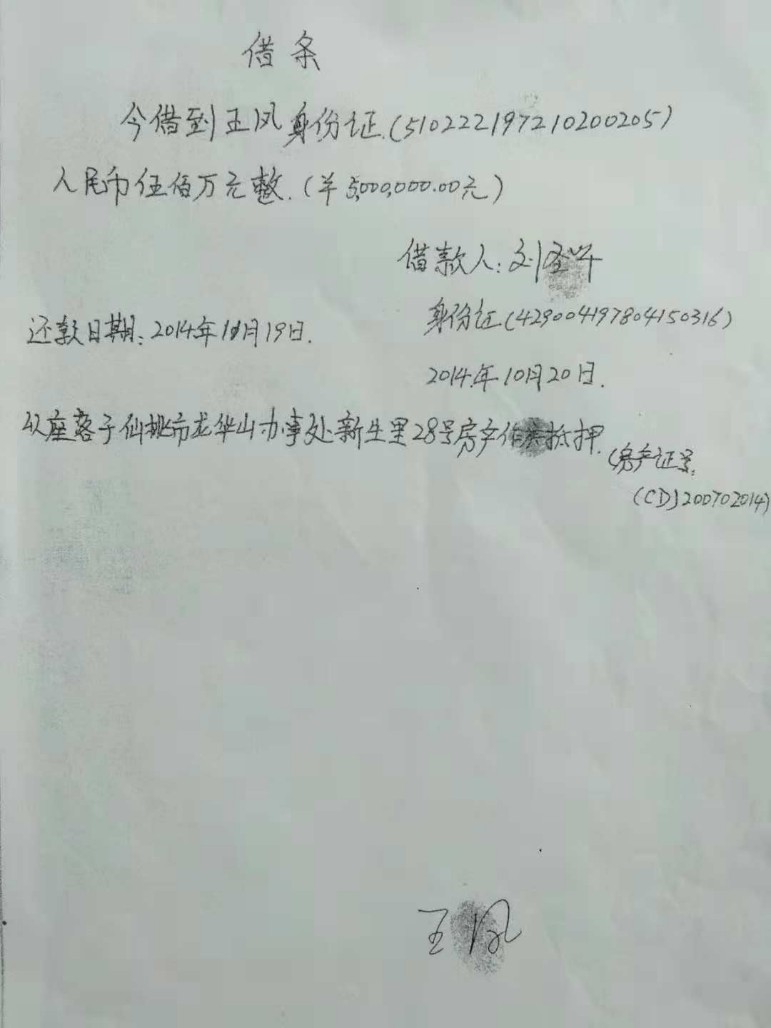 借条
今借到王凤身份证.(510222197210200205)
人民币伍佰万元整.(羊5,000,000.00元)
借款人:刘
身份证(429004197804150316)
还款日期:2014年11月19日.
2014年10月20日.
以座落于仙桃市龙华山办事处新生里28号房产作为抵押.
(房产证号:
(CD)200702014)
王凤